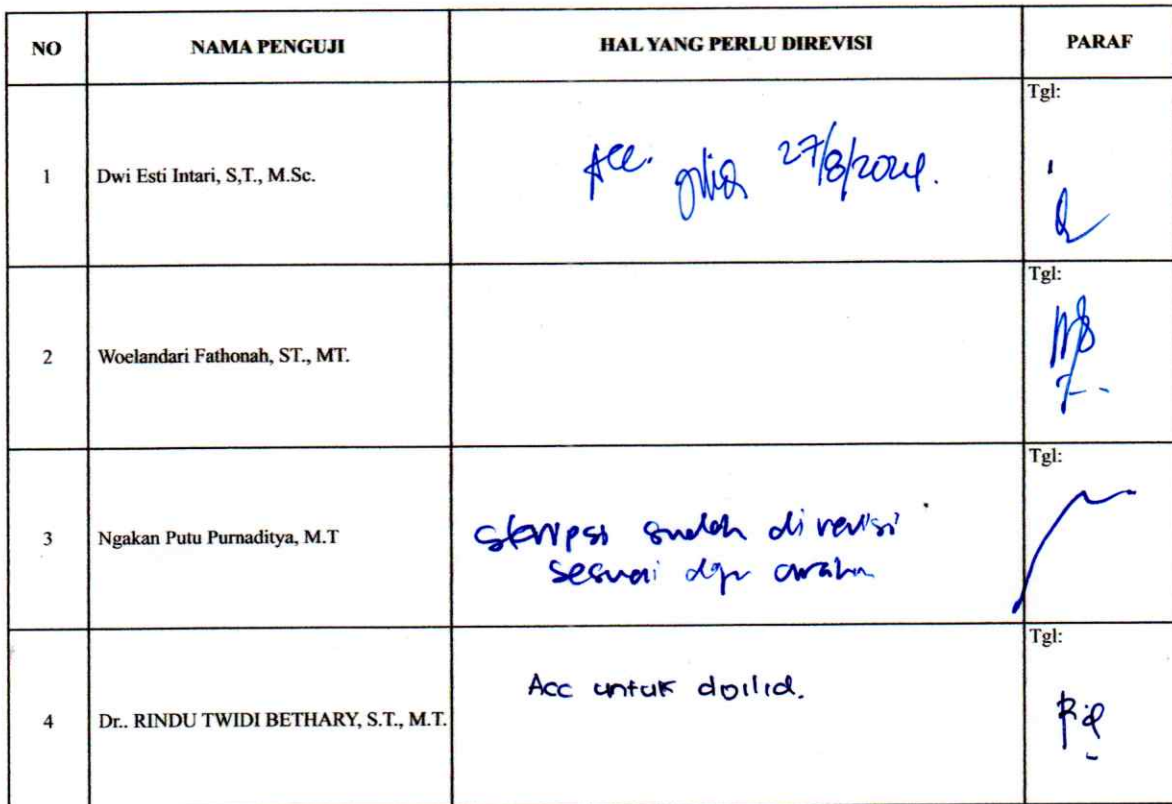 NO NAMA PENGUJI HAL YANG PERLU DIREVISI PARAF
Tgl:
1 Dwi Esti Intari, S,T., M.Sc. Acc. jilid 27/8/2024.
Tgl:
2 Woelandari Fathonah, ST., MT.
Tgl:
3 Ngakan Putu Purnaditya, M.T
skripsi sudah di revisi
sesuai dgn arahan
Tgl:
Acc untuk dijilid.
4 Dr.. RINDU TWIDI BETHARY, S.T., M.T.